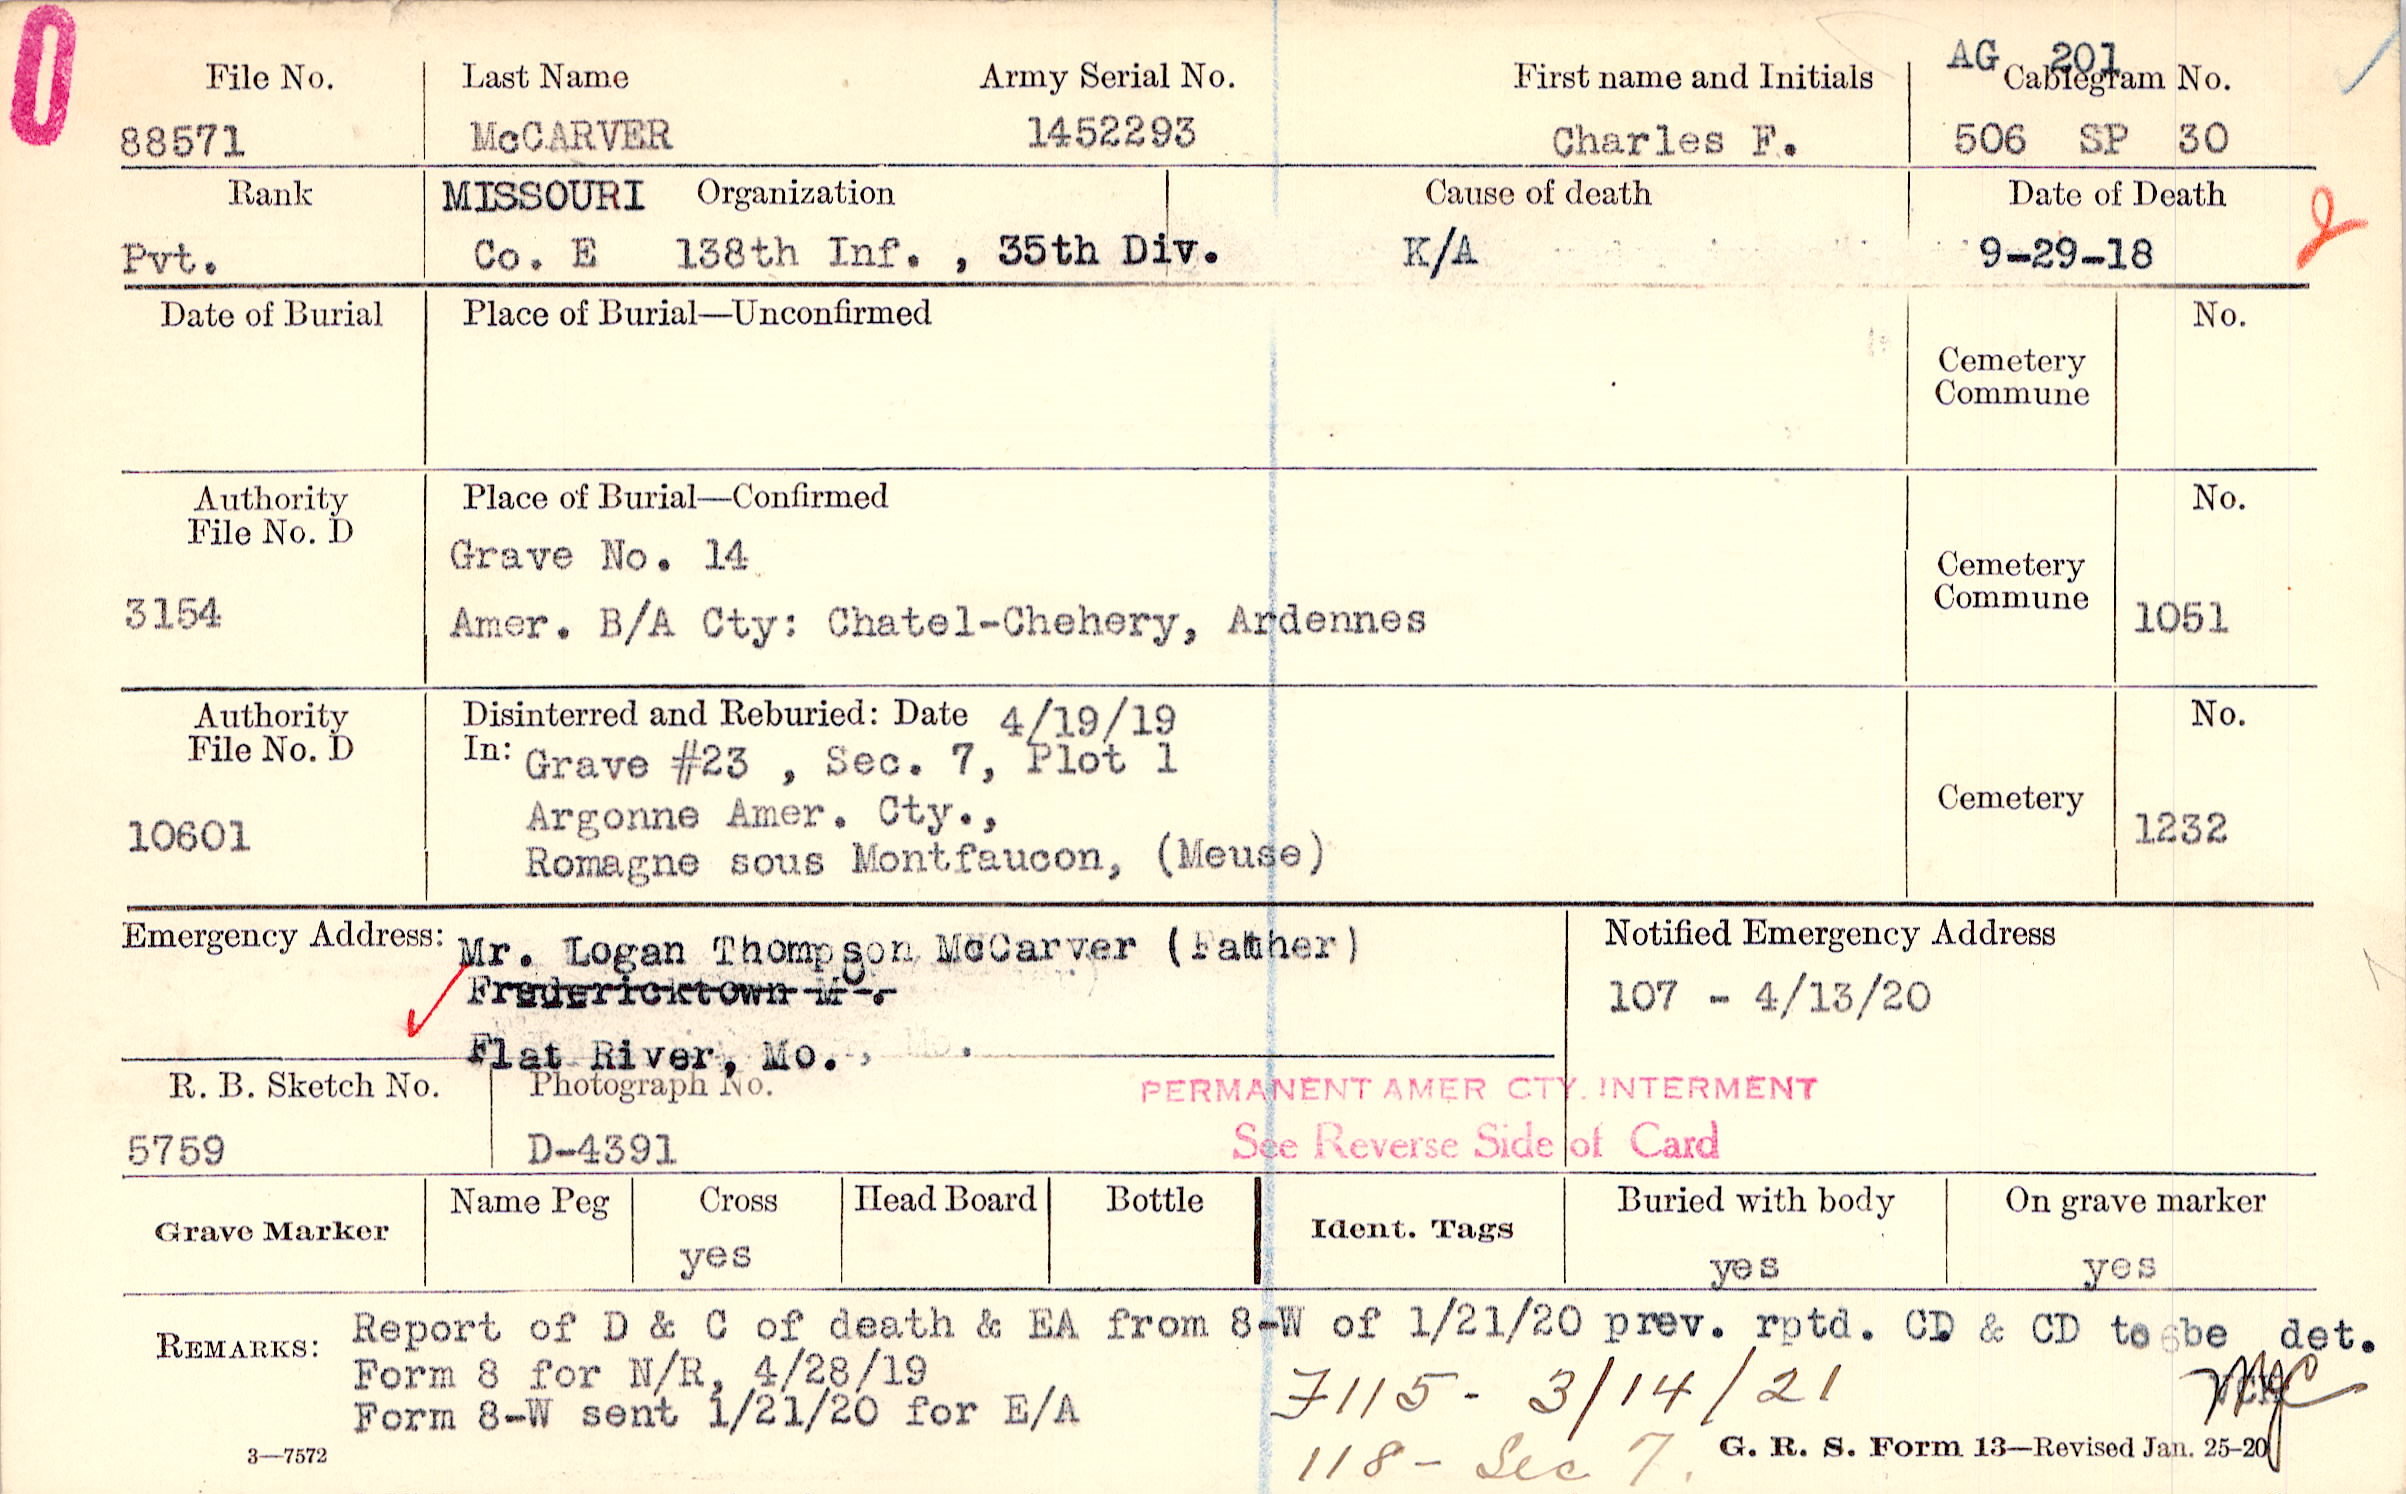 0
AG 201
File No. Last Name Army Serial No. First name and Initials Cablegram No.
88571 McCARVER 1452293 Charles F. 506 SP 30
Rank MISSOURI Organization Cause of death Date of Death
Pvt. Co. E 138th Inf. , 35th Div. K/A 9-29-18
2
Date of Burial Place of Burial—Unconfirmed No.
Cemetery
Commune
Authority Place of Burial—Confirmed No.
File No. D
Grave No. 14
Cemetery
Commune
3154 Amer. B/A Cty: Chatel-Chehery, Ardennes 1051
Authority Disinterred and Reburied: Date 4/19/19 No.
File No. D In: Grave #23 , Sec. 7, Plot 1
Cemetery
Argonne Amer. Cty.,
10601 1232
Romagne sous Montfaucon, (Meuse)
Emergency Address: Mr. Logan Thompson McCarver (Father) Notified Emergency Address
Fredericktown Mo.
107 - 4/13/20
Flat River, Mo.
R. B. Sketch No. Photograph No. PERMANENT AMER CTY. INTERMENT
5759 D-4391 See Reverse Side of Card
Grave Marker Name Peg Cross Head Board Bottle Ident. Tags Buried with body On grave marker
yes yes yes
REMARKS: Report of D & C of death & EA from 8-W of 1/21/20 prev. rptd. CD & CD to be det.
Form 8 for N/R, 4/28/19
Form 8-W sent 1/21/20 for E/A
7115 - 3/14/21
118 - Sec 7.
3—7572 G. R. S. Form 13—Revised Jan. 25-20